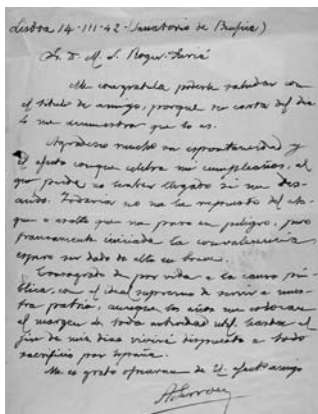 Lisboa 14-III-42-(Sanatorio de Benfica)
Sr. D. M. S. Roger-Surié
Me congratula poderle saludar con
el título de amigo, porque su carta del día
4 me demuestra que lo es.
Agradezco mucho su espontaneidad y
el afecto conque celebra mi cumpleaños, al
que pude no haber llegado si me des-
cuido. Todavía no me he repuesto del ata-
que o asalto que me puso en peligro, pero
francamente iniciada la convalecencia
espero ser dado de alta en breve.
Consagrado de por vida a la causa pú-
blica, con el ideal supremo de servir a nues-
tra patria, aunque los años me colocan
al margen de toda actividad util, hasta el
fin de mis días viviré dispuesto a todo
sacrificio por España.
Me es grato ofrecerme de U. afectuo amigo
ALerroux